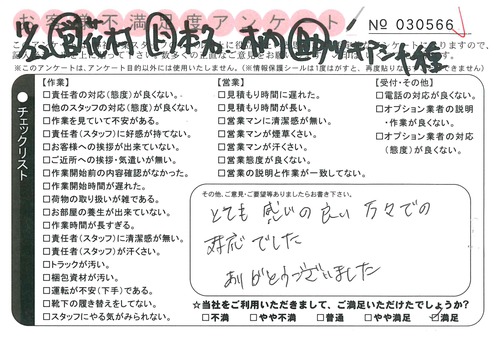 お客様不満足度アンケート
No 030566
※このアンケートは、アンケート目的以外には使用いたしません。(※情報保護シールは1度はがすと、再度貼りなおすことはできません)
チェックリスト
【作業】
□責任者(態度)が良くない。
□他のスタッフの対応(態度)が良くない。
□作業を見ていて不安がある。
□責任者(スタッフ)に好感が持てない。
□お客様への挨拶が出来ていない。
□ご近所への挨拶・気遣いが無い。
□作業開始前の内容確認がなかった。
□作業開始時間が遅れた。
□荷物の取り扱いが雑である。
□お部屋の養生が出来ていない。
□作業時間が長すぎる。
□責任者(スタッフ)に清潔感が無い。
□責任者(スタッフ)が汗くさい。
□トラックが汚い。
□梱包資材が汚い。
□運転が不安(下手)である。
□靴下の履き替えをしてない。
□スタッフにやる気がみられない。
【営業】
□見積もり時間に遅れた。
□見積もり時間が長い。
□営業マンに清潔感が無い。
□営業マンが煙草くさい。
□営業マンが汗くさい。
□営業態度が良くない。
□営業の説明と作業が一致してない。
【受付・その他】
□電話の対応が良くない。
□オプション業者の説明
・作業が良くない。
□オプション業者の対応
(態度)が良くない。
その他、ご意見・ご要望等ありましたらお書き下さい。
とても 感じの良い 方々での
対応でした
ありがとうございました
☆当社をご利用いただきまして、ご満足いただけたでしょうか?
□不満 □やや不満 □普通 □やや満足 ☑満足